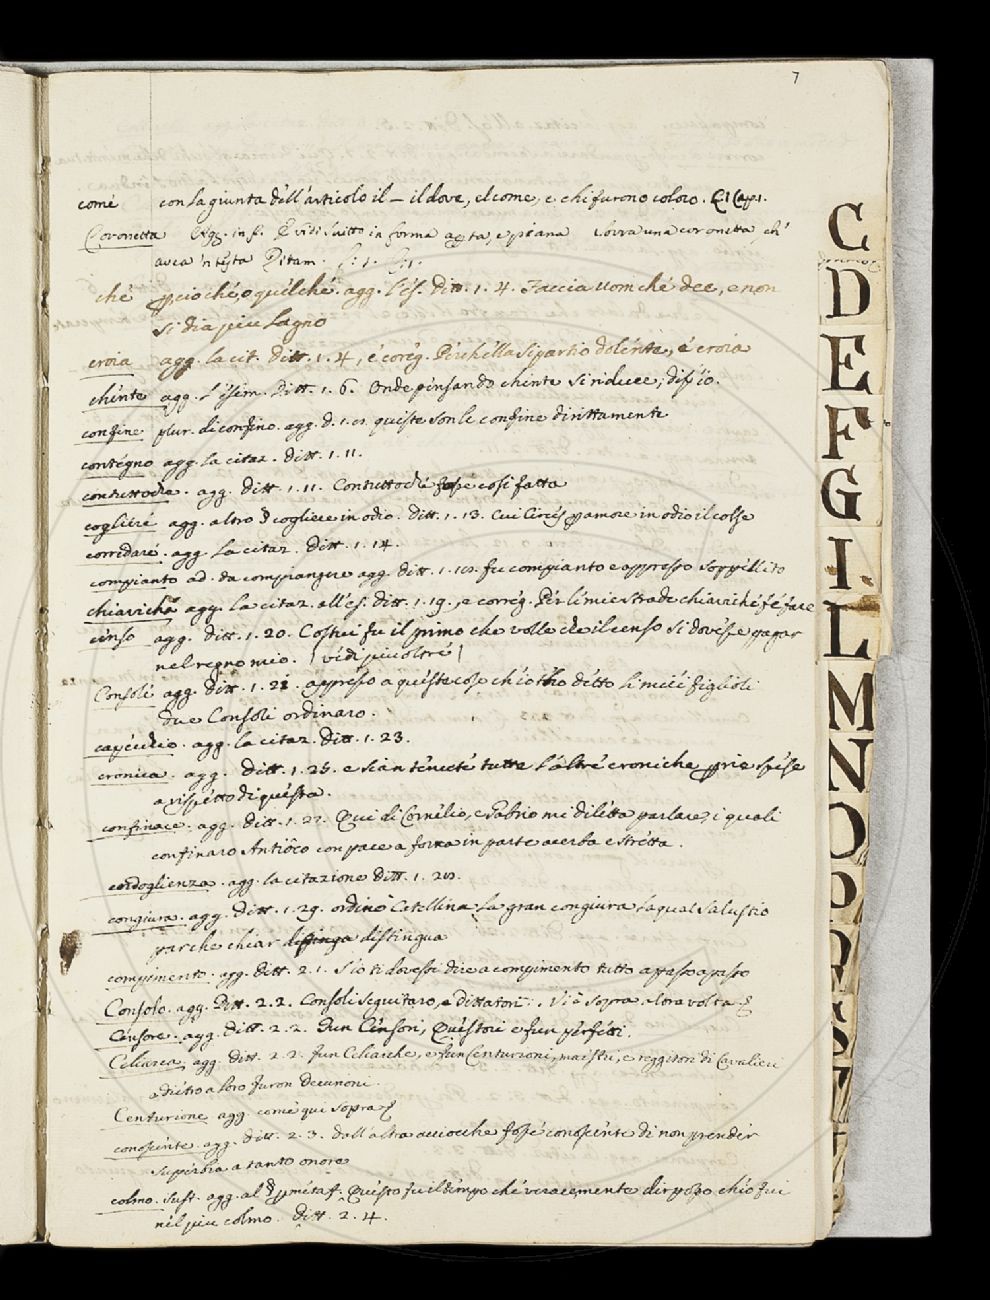 7
comé con la giunta dell'articolo il – il dove, el come, e chi furono coloro. Cap. 1.
Coronetta Agg. in f. E vidi scritto in forma aperta, e piana sovra una coronetta, ch'
avea 'n testa Dittam. 1.
ché percioché, o quel ché. agg. l'es. Ditt. 1. 4. Faccia uom ché dee, e non
si dia piu lagno
croia agg. la cit. Ditt. 1. 4, é coreg. Perch'ella si partio dolente, é croia
chente agg. l'esem. Ditt. 1. 6. Onde pensando chente si riduce; disp'io.
confine plur. di confino. agg. D. 1. queste son le confine dirittamente
contegno agg. la citaz. Ditt. 1. 11.
contuttoche. agg. Ditt. 1. 11. Contuttoché fosse cosi fatta
cogliere agg. altro cogliere in odio. Ditt. 1. 13. cui per amore in odio il colse
corredare. agg. la citaz. Ditt. 1. 14.
compianto ad. da compiangere agg. Ditt. 1. fu compianto e appresso soppellito
chiaviché agg. la citaz. all'es. Ditt. 1. 19., e correg. Per li mie strade chiaviché fé fare
censo agg. Ditt. 1. 20. Costui fu il primo che volle che il censo si dovesse pagar
nel regno mio. | vedi piu oltre |
Consolé agg. Ditt. 1. 21. appresso a queste cose ch'io t'ho ditto li miei figlioli
due Consoli ordinaro.
capecchio. agg. la citaz. Ditt. 1. 23.
cronica. agg. Ditt. 1. 25. e sian tenuté tutte l'altré croniche spese
a rispetto di questa.
confinace. agg. Ditt. 1. 27. Qui di Cornelio, e Fabrio mi diletta parlare, i quali
confinaro Antioco con pace a forza in parte acerba e stretta.
cordoglienza. agg. la citazione Ditt. 1. 28.
congiura. agg. Ditt. 1. 29. ordino Catellina la gran congiura la qual Salustio
par che chiar distingua
compimento. agg. Ditt. 2. 1. S'io ti dovessi dire a compimento tutto a passo a passo
Consolo. agg. Ditt. 2. 2. Consoli seguitaro, e dittatori. Vi è sopra altra volta.
Censore. agg. Ditt. 2. 2. Fun Censori, Questori e fun perfetti.
Celiarca, agg. Ditt. 2. 2. fun Celiarche, e fun Centurioni, maestri, e reggitori di Cavalieri
dietro a loro furon decunoni.
Centurione agg. comé qui sopra
conoscente. agg. Ditt. 2. 3. dall'altra acciocche fossé conoscente di non prender
superbia a tanto onore
colmo. sust. agg. al § per metaf. Questo fu il tempo ché veracemente dir posso ch'io fui
nel piu colmo. Ditt. 2. 4.
C
D
E
F
G
I
L
M
N
O
P
Q
S
T
V